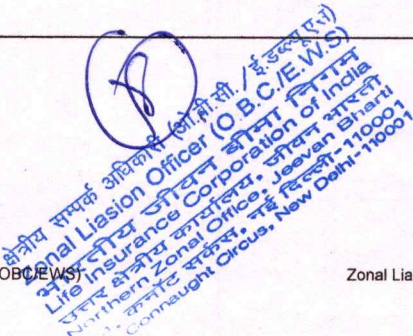 क्षेत्रीय सम्पर्क अधिकारी (ओ.बी.सी./ई.डब्ल्यू.एस)
Zonal Liasion Officer (O.B.C/E.W.S)
भारतीय जीवन बीमा निगम
Life Insurance Corporation of India
उत्तर क्षेत्रीय कार्यालय, जीवन भारती
Northern Zonal Office, Jeevan Bharti
कनॉट सर्कस, नई दिल्ली-110001
Connaught Circus, New Delhi-110001
OBC/EWS)
Zonal Lia